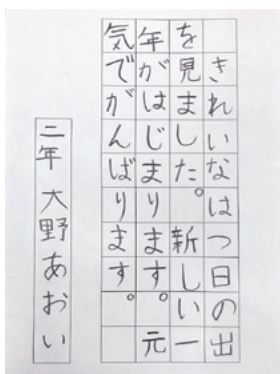 きれいなはつ日の出
を見ました。新しい一
年がはじまります。元
気でがんばります。
二年 大野あおい